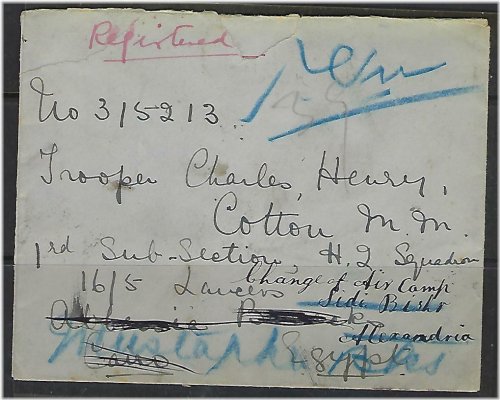 Registered
No 315213.
Trooper Charles, Henry,
Cotton M.M.
1rd Sub-Section H.Q Squadron
16/5 Lancers
Change of Air Camp
Sidi Bishr
Alexandria
Mustapha
Cairo
Egypt